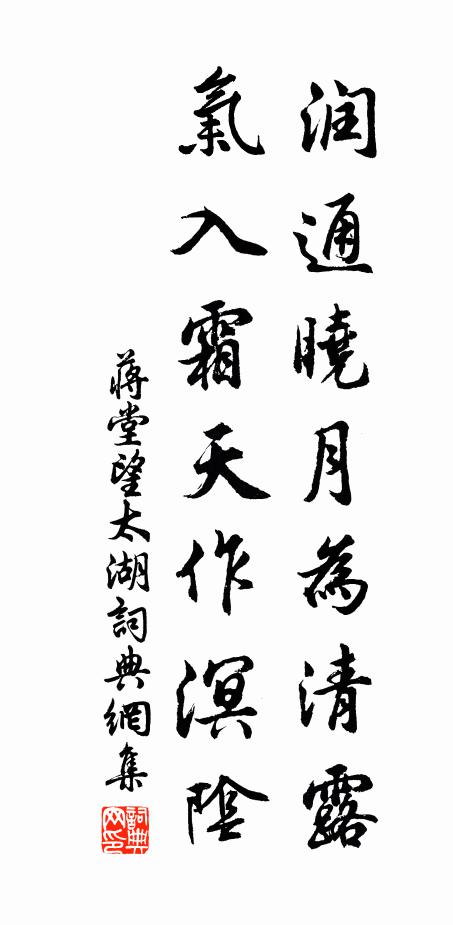 润通曉月為清露
氣入霜天作溟陰
蔣堂望太湖詞典網集
詞典网印